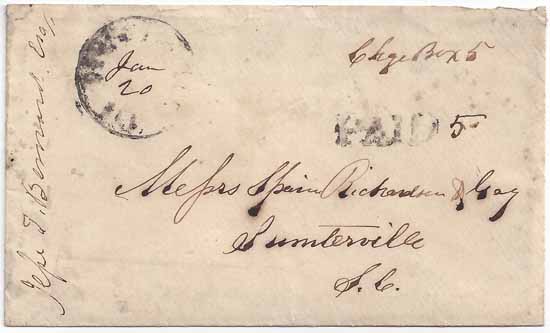 Jan
20
Chge Box 5
PAID 5
Messrs Spain Richardson & Gay
Sumterville
S.C.
Jesse T. Bernard Esq